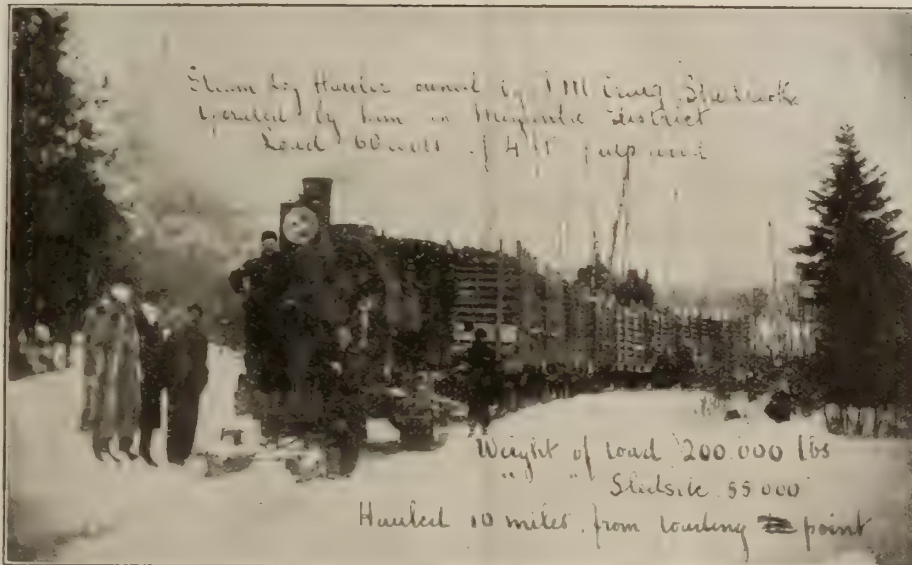 Steam Log Hauler owned by J M
operated by him in Megantic District
Load 60 of 4 ft pulp wood
Weight of load 200.000 lbs
" " Sleds 55 000
Hauled 10 miles from loading point